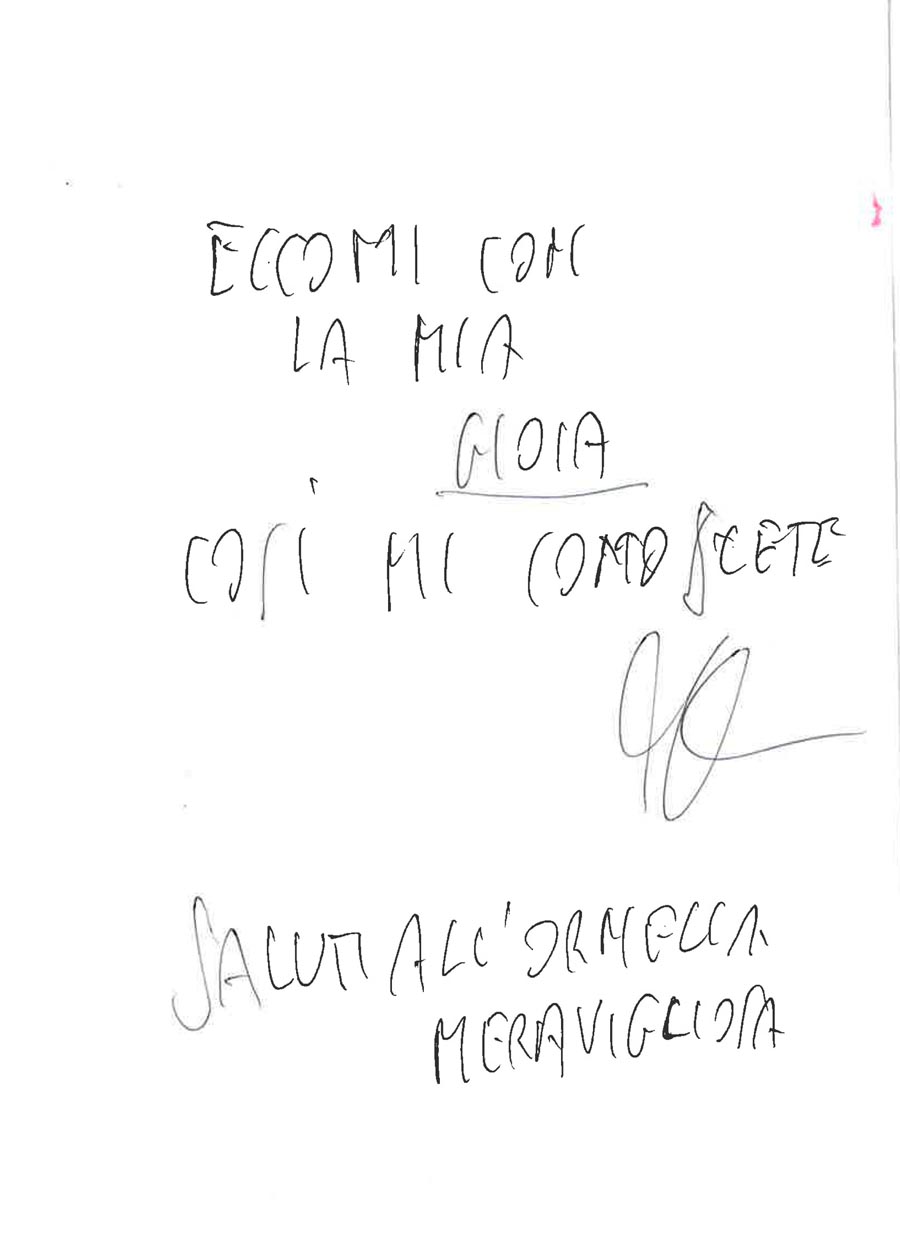 ECCOMI CON
LA MIA
GIOIA
COSÌ MI CONOSCETE
SALUTI ALL'ORNELLA
MERAVIGLIOSA